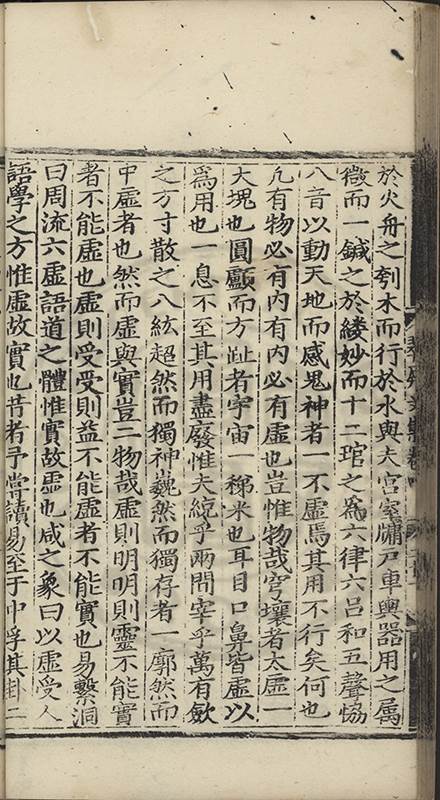 於火舟之刳木而行於水與夫宮室牖戸車輿器用之屬
微而一鍼之於縷妙而十二琯之爲六律六呂和五聲恊
八音以動天地而感鬼神者一不虛焉其用不行矣何也
凡有物必有内有内必有虛也豈惟物哉穹壤者太虛一
大塊也圓顱而方趾者宇宙一稊米也耳目口鼻皆虛以
爲用也一息不至其用盡廢惟夫綂乎兩間宰乎萬有歛
之方寸散之八紘超然而獨神巍然而獨存者一廓然而
中虛者也然而虛與實豈二物哉虛則明明則靈不能實
者不能虛也虛則受受則益不能虛者不能實也易繫洞
曰周流六虛語道之體惟實故虛也咸之象曰以虛受人
語學之方惟虛故實也昔者予嘗讀易至于中孚其卦二